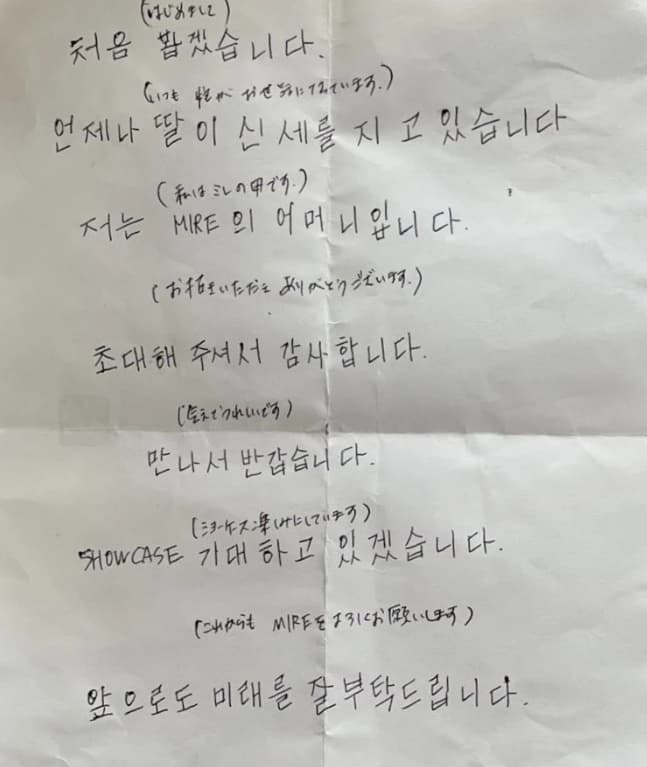 (はじめまして)
처음 봽겠습니다.
(いつも 娘が お世話になっています。)
언제나 딸이 신세를 지고 있습니다
(私は ミレの母です。)
저는 MIRE의 어머니입니다.
(お招きいただき ありがとうございます。)
초대해 주셔서 감사합니다.
(会えてうれしいです)
만나서 반갑습니다.
(ショーケース楽しみにしています)
SHOWCASE 기대하고 있겠습니다.
(これからも MIREをよろしくお願いします)
앞으로도 미래를 잘부탁드립니다.